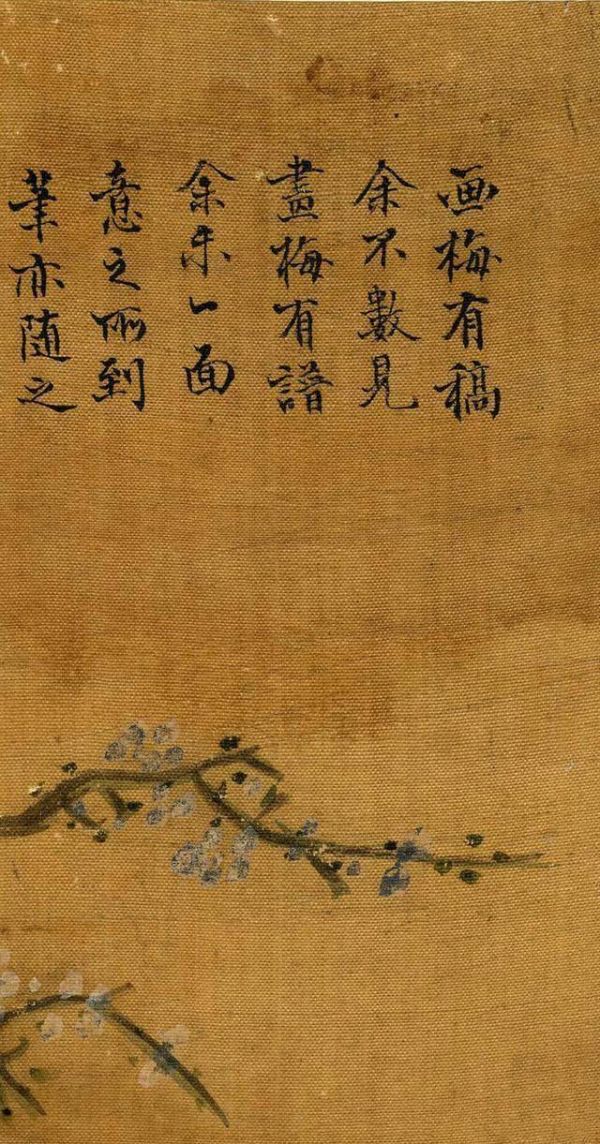 画梅有稿
余不數見
畫梅有譜
余未一面
意之所到
筆亦随之